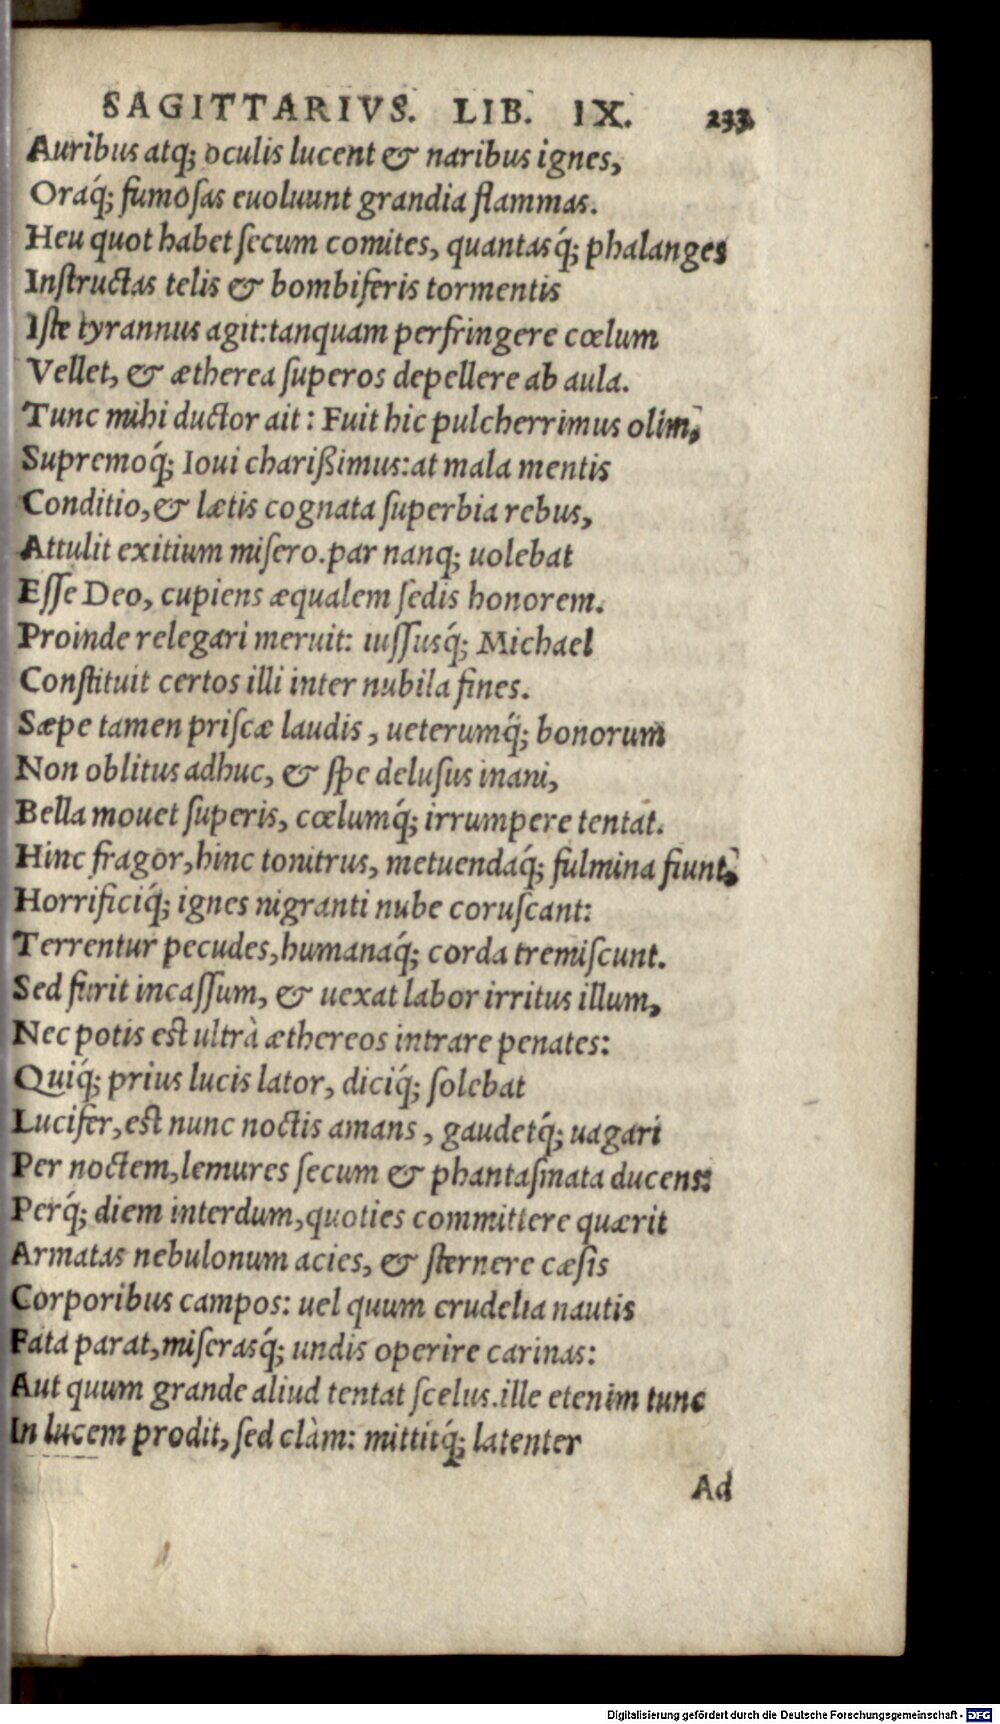 SAGITTARIVS. LIB. IX. 233.
Auribus atq; oculis lucent & naribus ignes,
Oraq́; fumoſas euoluunt grandia flammas.
Heu quot habet ſecum comites, quantasq́; phalanges
Inſtructas telis & bombiferis tormentis
Iſte tyrannus agit:tanquam perfringere cœlum
Vellet, & ætherea ſuperos depellere ab aula.
Tunc mihi ductor ait: Fuit hic pulcherrimus olim,
Supremoq́; Ioui charißimus:at mala mentis
Conditio,& lætis cognata ſuperbia rebus,
Attulit exitium miſero.par nanq; uolebat
Eſſe Deo, cupiens æqualem ſedis honorem.
Proinde relegari meruit: iuſſusq́; Michael
Conſtituit certos illi inter nubila fines.
Sæpe tamen priſcæ laudis, ueterumq́; bonorum
Non oblitus adhuc, & ſpe deluſus inani,
Bella mouet ſuperis, cœlumq́; irrumpere tentat.
Hinc fragor,hinc tonitrus, metuendaq́; fulmina fiunt,
Horrificiq́; ignes nigranti nube coruſcant:
Terrentur pecudes,humanaq́; corda tremiſcunt.
Sed furit incaſſum, & uexat labor irritus illum,
Nec potis est ultrà æthereos intrare penates:
Quiq́; prius lucis lator, diciq́; ſolebat
Lucifer,est nunc noctis amans, gaudetq́; uagari
Per noctem,lemures ſecum & phantaſmata ducens:
Perq́; diem interdum,quoties committere quærit
Armatas nebulonum acies, & ſternere cæſis
Corporibus campos: uel quum crudelia nautis
Fata parat,miſerasq́; undis operire carinas:
Aut quum grande aliud tentat ſcelus.ille etenim tunc
In lucem prodit, ſed clàm: mittitq́; latenter
Ad
Digitalisierung gefördert durch die Deutsche Forschungsgemeinschaft - DFG